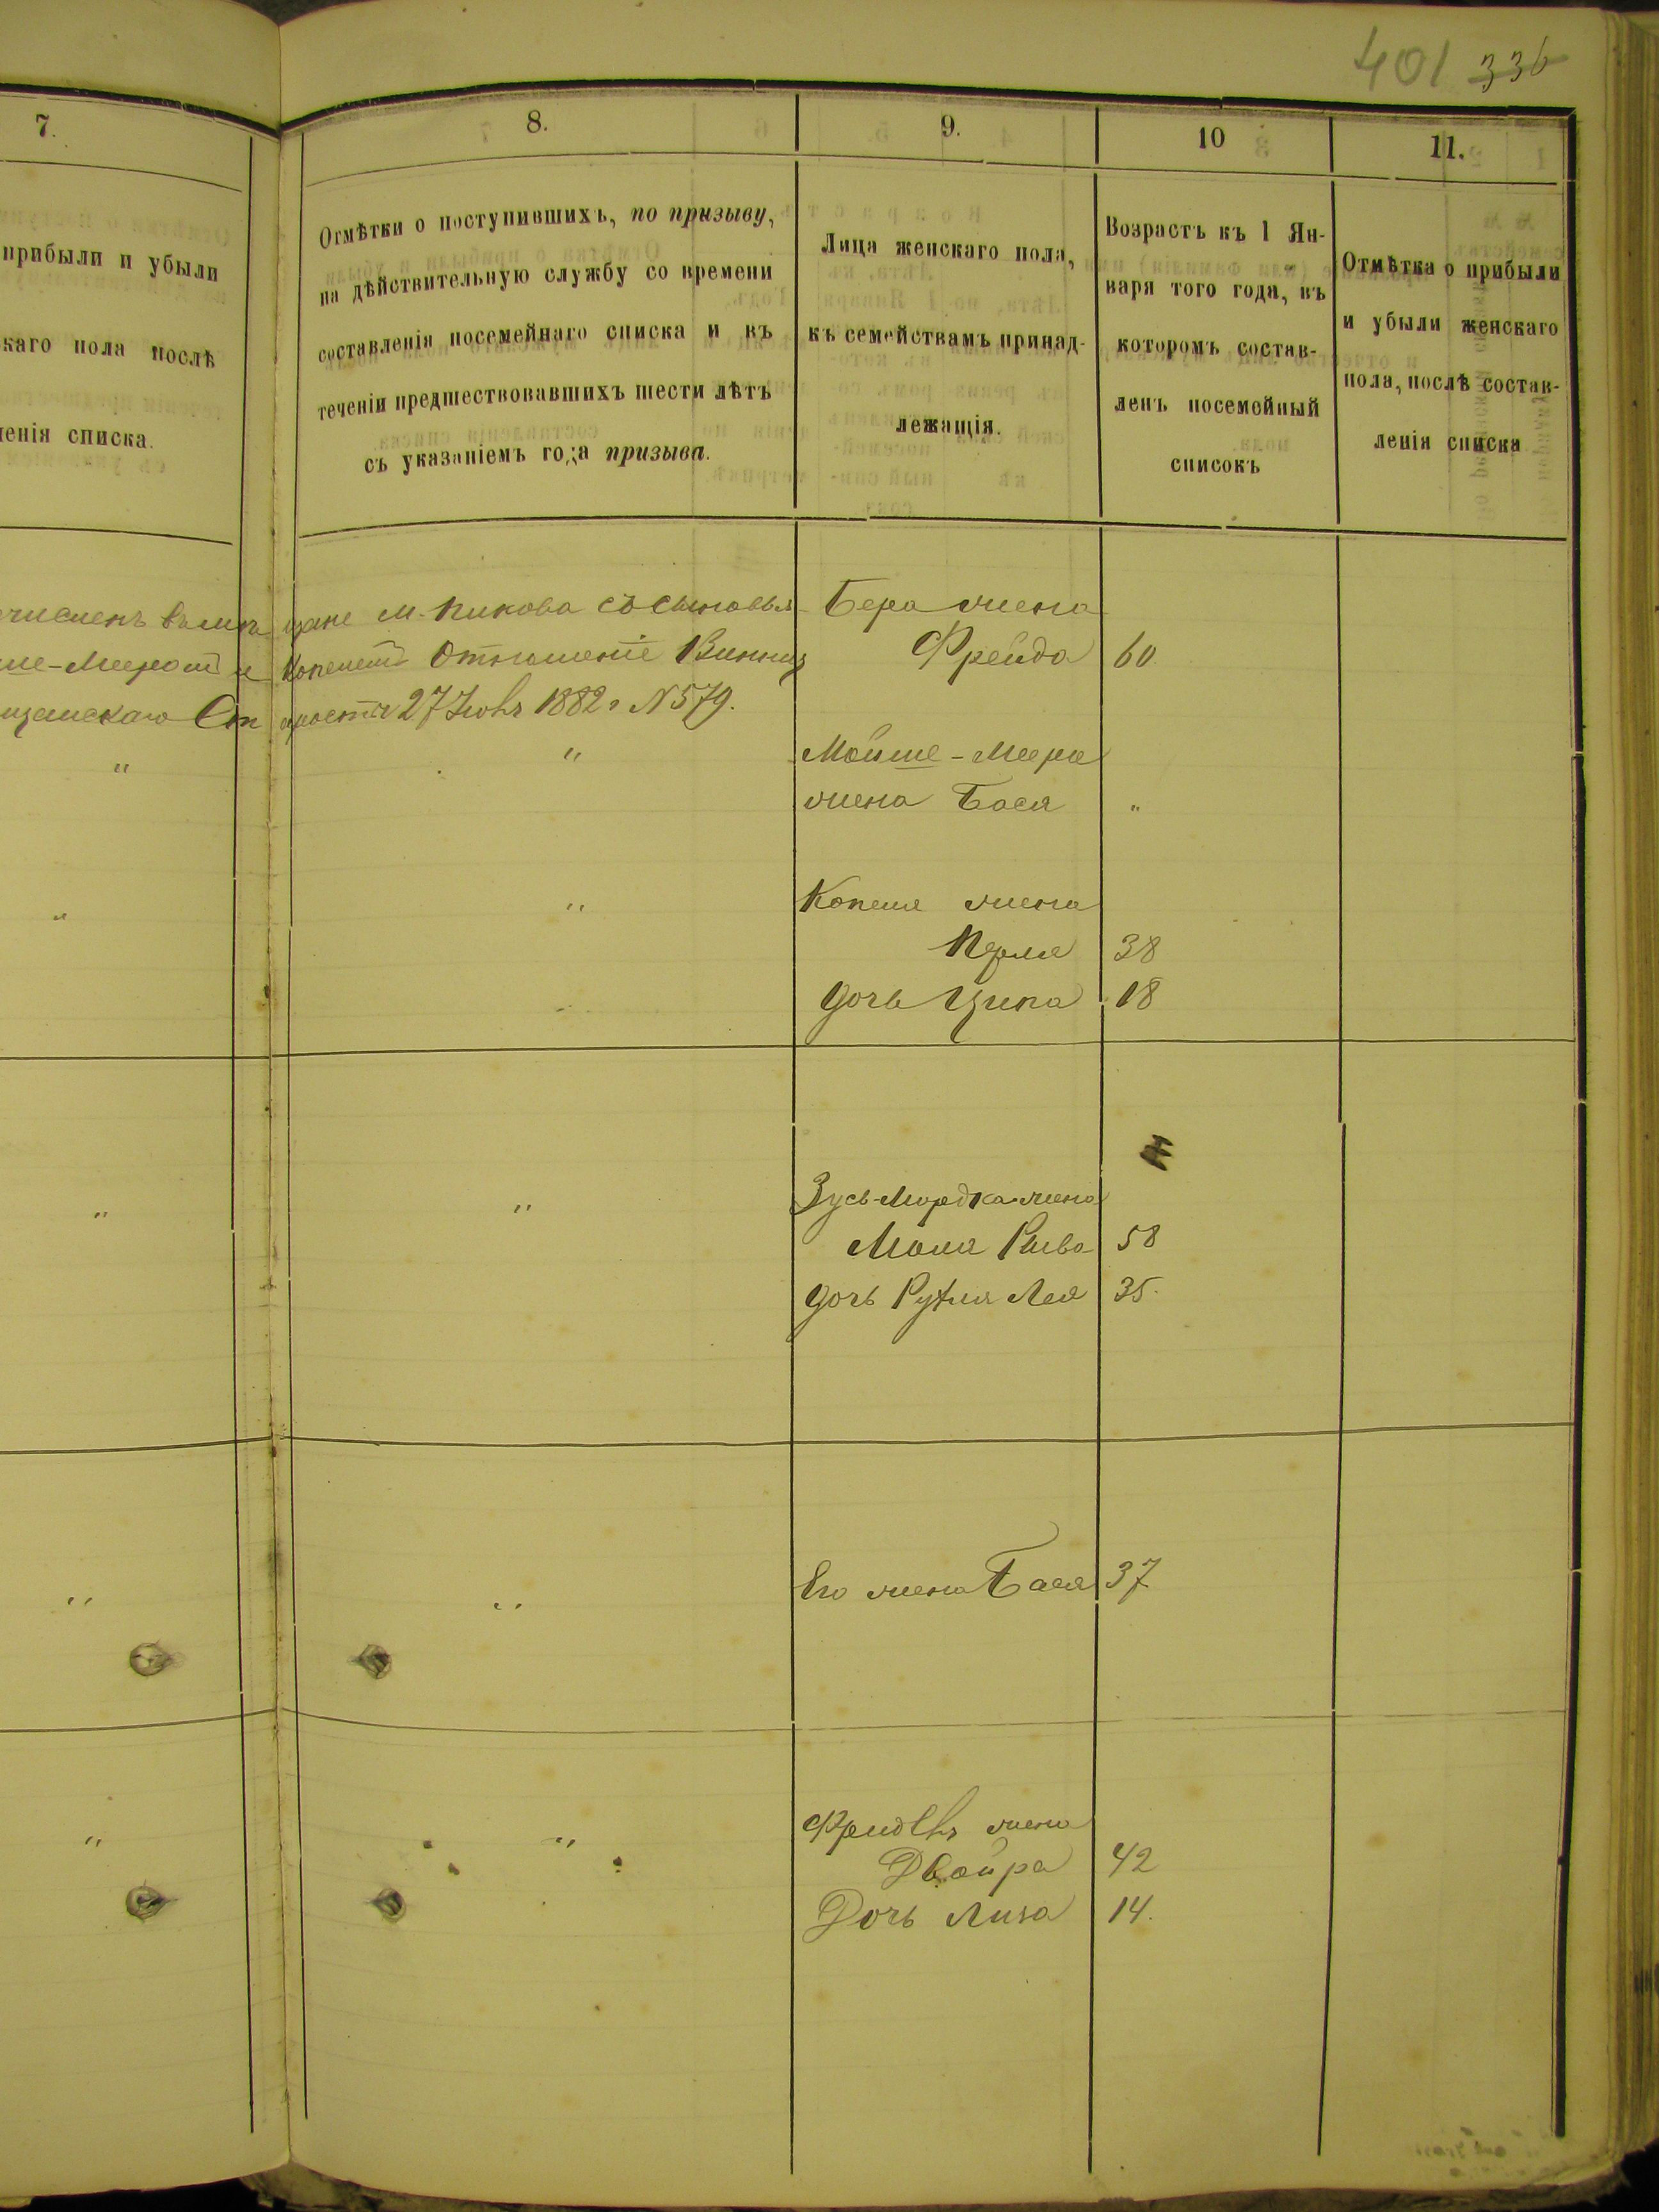 401 336
7.
прибыли и убыли
каго пола послѣ
ленія списка.
8.
Отмѣтки о поступившихъ, по призыву,
на дѣйствительную службу со времени
составленія посемейнаго списка и въ
теченіи предшествовавшихъ шести лѣтъ
съ указаніемъ года призыва.
9.
Лица женскаго пола,
къ семействамъ принад-
лежащія.
10
Возрастъ къ 1 Ян-
варя того года, въ
которомъ состав-
ленъ посемейный
списокъ
11.
Отмѣтка о прибыли
и убыли женскаго
пола, послѣ состав-
ленія списка
численъ в мѣщане м. Пикова съ сыновья
ше-Мееромъ и Копелемъ Отношеніе Винниц
щанскаго Старосты 27 Іюнь 1882 г N 579.
Бера жена
Фрейда 60
" " Мойше-Меера
жена Бася "
" " Копеля жена
Перля 38
дочь Ципа 18
" " Зусь-Мордка жена
Маля Рыва 58
дочь Рухля Лея 35.
" " Его жена Бася 37
" " жена
Двойра 42
Дочь Лиза 14.